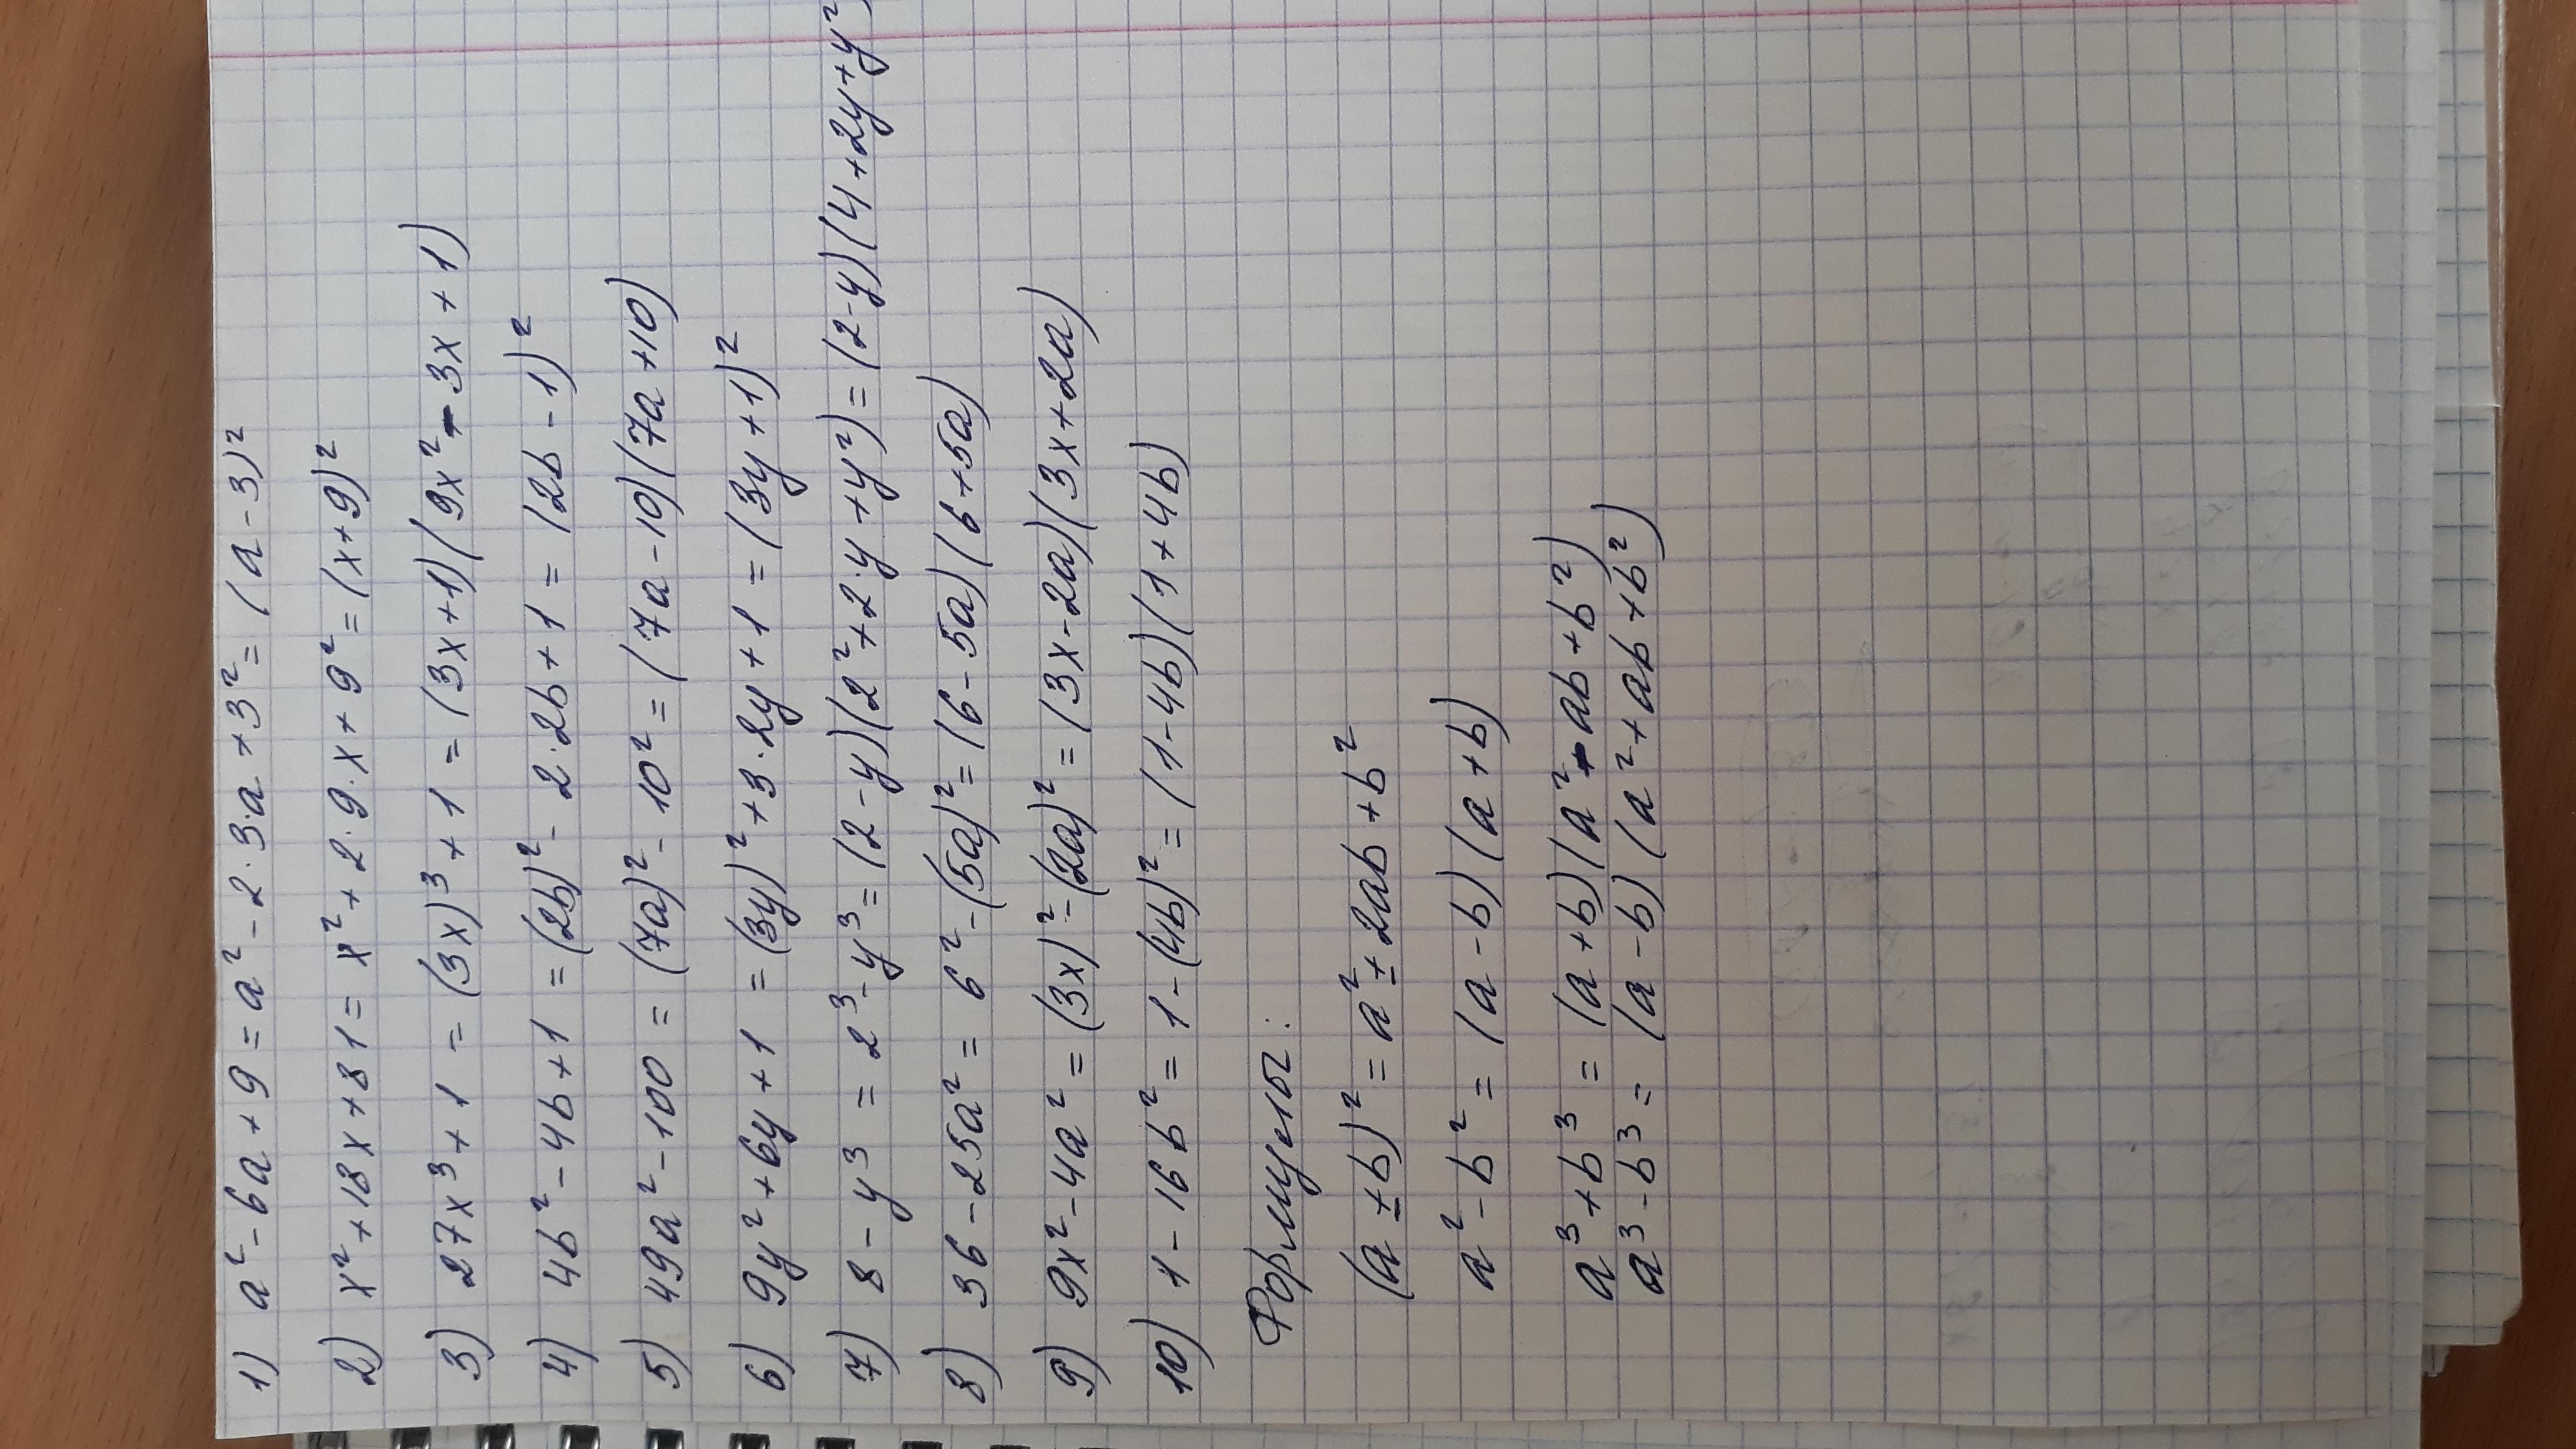 1) a² - 6a + 9 = a² - 2·3·a + 3² = (a - 3)²
2) x² + 18x + 81 = x² + 2·9·x + 9² = (x + 9)²
3) 27x³ + 1 = (3x)³ + 1 = (3x + 1)(9x² - 3x + 1)
4) 4b² - 4b + 1 = (2b)² - 2·2b + 1 = (2b - 1)²
5) 49a² - 100 = (7a)² - 10² = (7a - 10)(7a + 10)
6) 9y² + 6y + 1 = (3y)² + 3·2y + 1 = (3y + 1)²
7) 8 - y³ = 2³ - y³ = (2 - y)(2² + 2·y + y²) = (2 - y)(4 + 2y + y²)
8) 36 - 25a² = 6² - (5a)² = (6 - 5a)(6 + 5a)
9) 9x² - 4a² = (3x)² - (2a)² = (3x - 2a)(3x + 2a)
10) 1 - 16b² = 1 - (4b)² = (1 - 4b)(1 + 4b)
Формулы:
(a ± b)² = a² ± 2ab + b²
a² - b² = (a - b)(a + b)
a³ + b³ = (a + b)(a² - ab + b²)
a³ - b³ = (a - b)(a² + ab + b²)